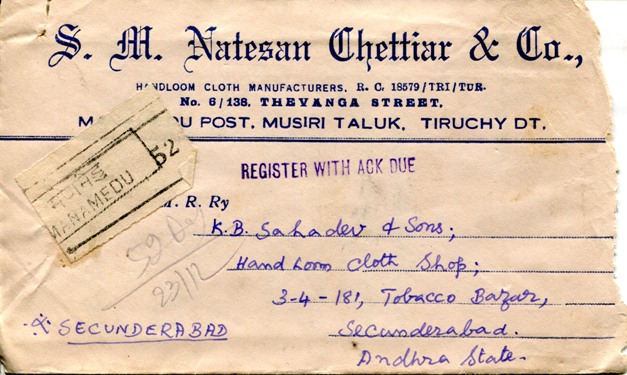 S. M. Natesan Chettiar & Co.,
HANDLOOM CLOTH MANUFACTURERS, R. C. 18579/TRI/TUR.
No. 6/138, THEVANGA STREET,
M DU POST, MUSIRI TALUK, TIRUCHY DT.
52
MANAMEDU
REGISTER WITH ACK DUE
M. R. Ry
K.B. Sahadev & Sons;
Handloom Cloth Shop;
3-4-181, Tobacco Bazar,
SECUNDERABAD
Secunderabad.
Andhra State.
23/12